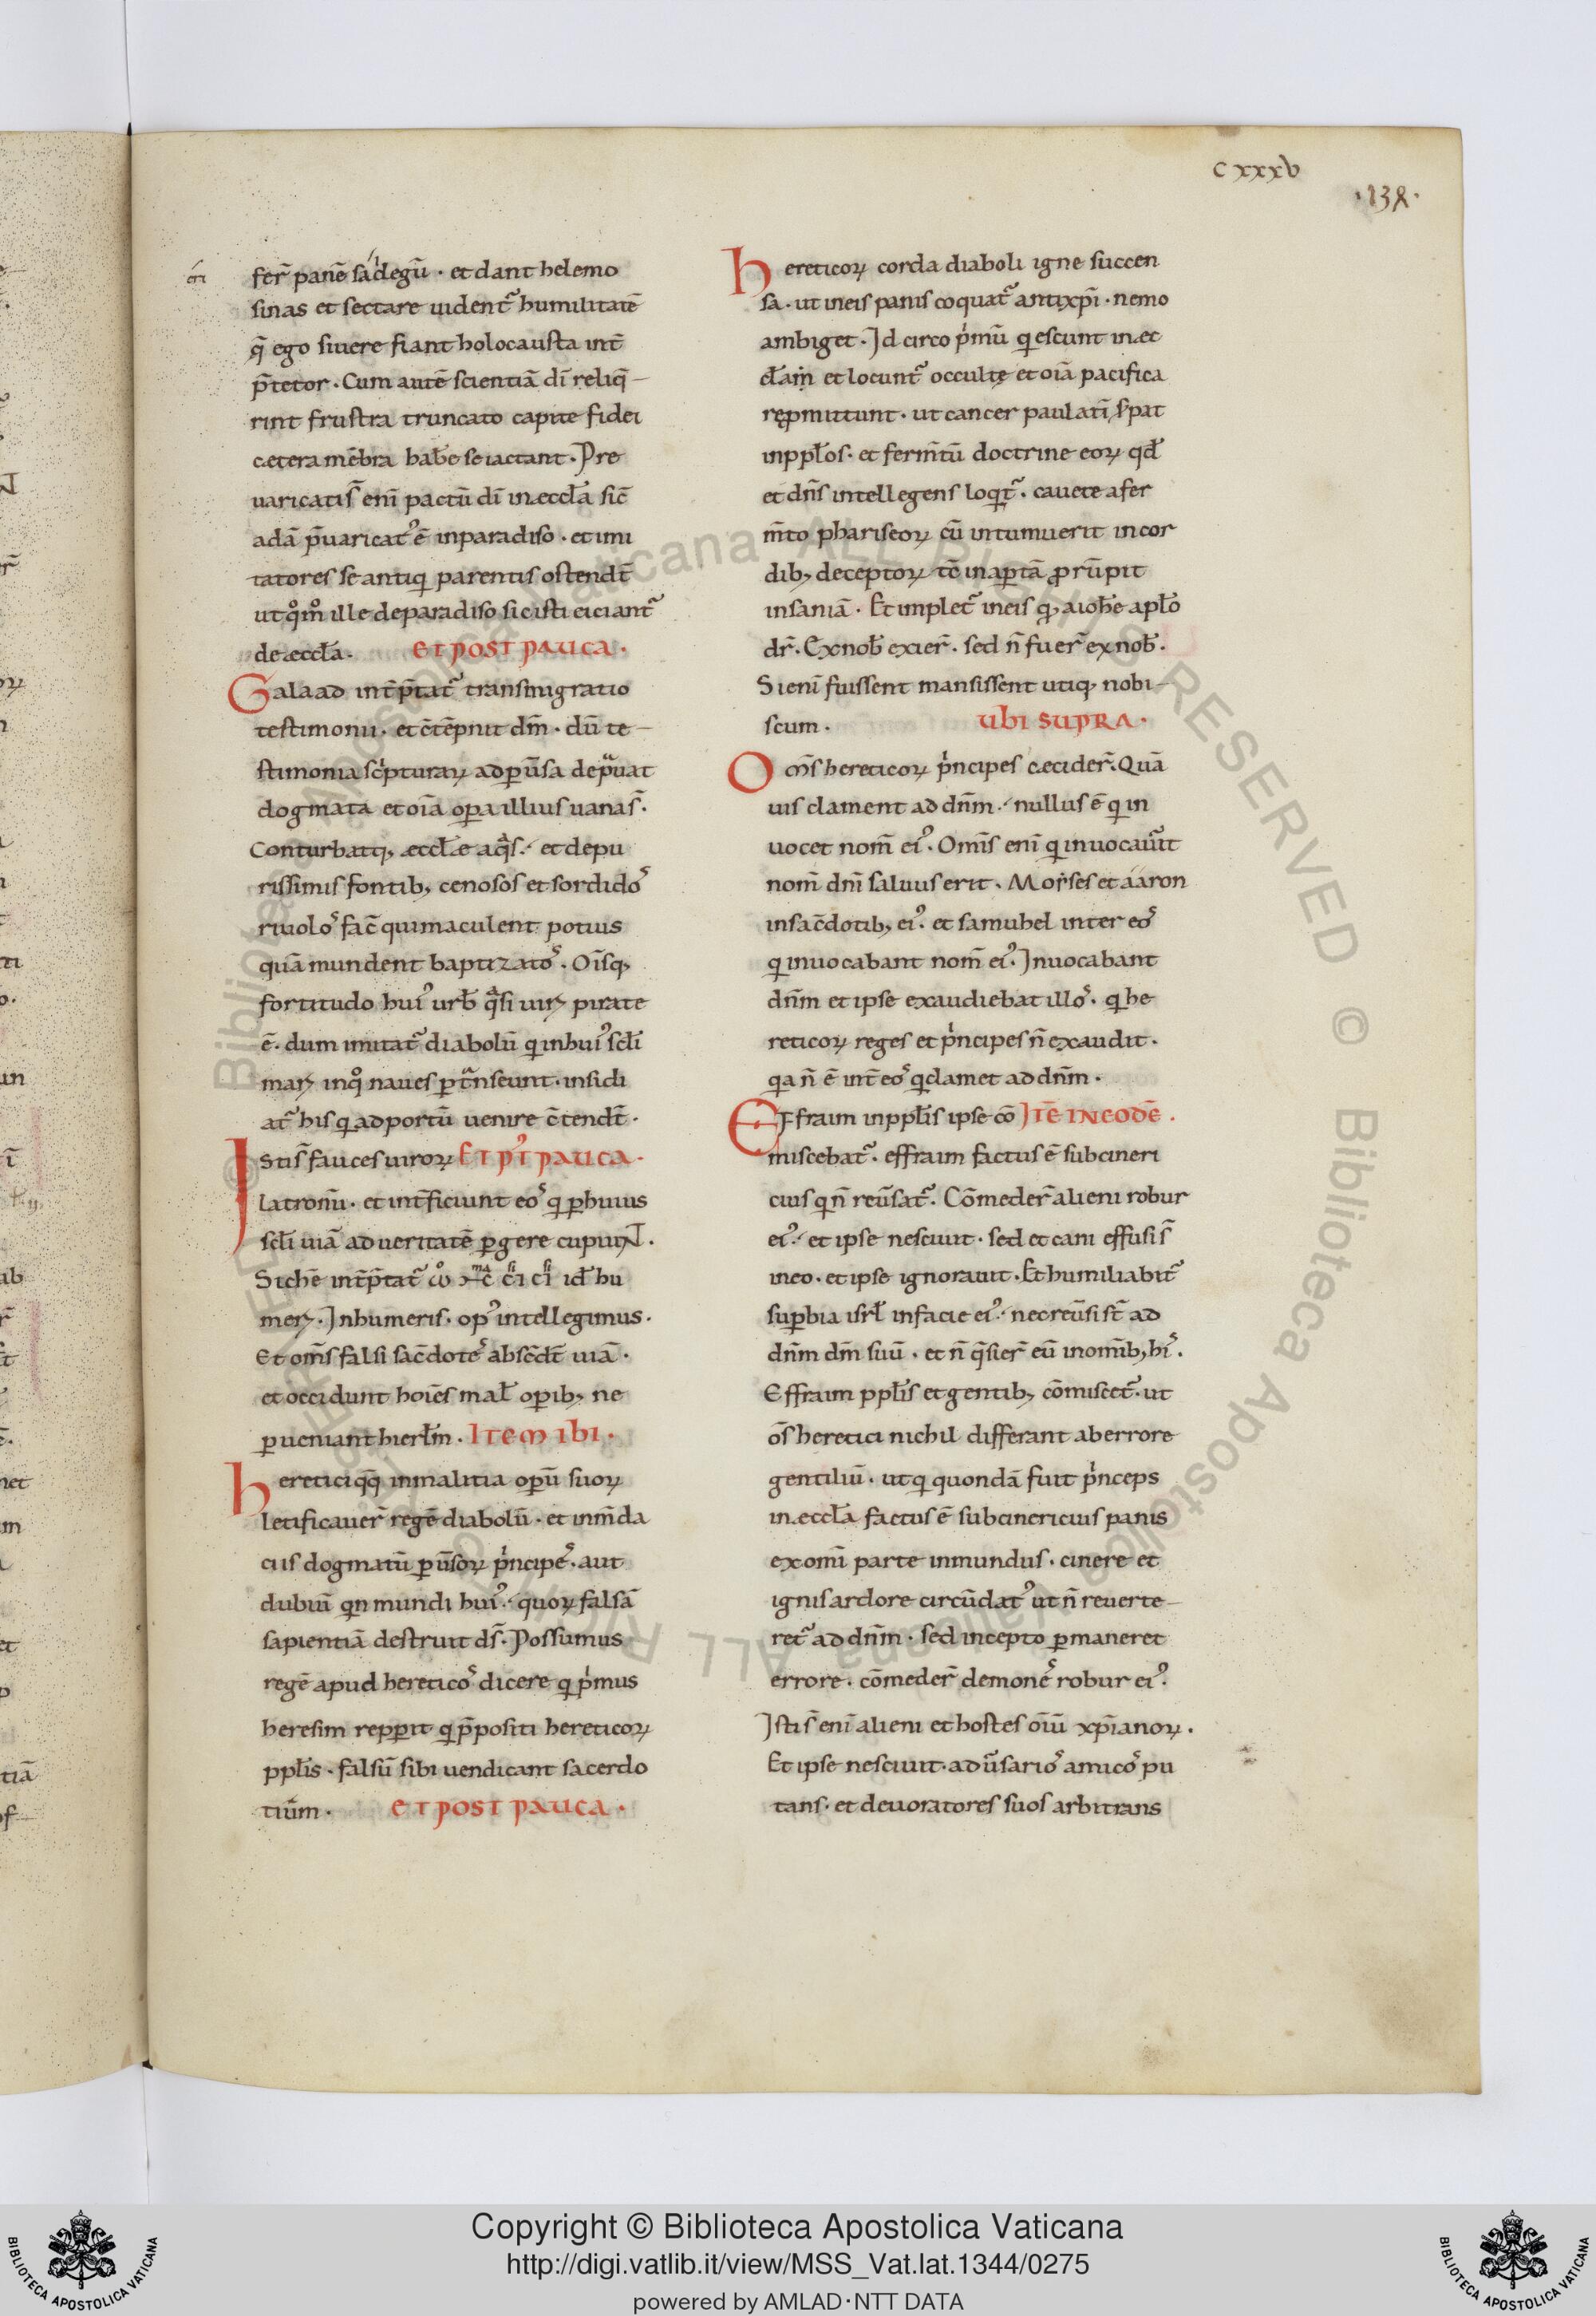 c xxxv
·138·
fer̄ panē sa'degū · et dant helemo
sinas et sectare uident᷑ humilitatē
q̄ ego siuere fiant holocausta int̄
p̄tetor · Cum autē scientiā dī reliq̄
rint frustra truncato capite fidei
cetera mēbra habe se iactant · Pre
uaricatiſ̄ enī pactū dī in æccła sic̄
adā p̄uaricat᾿ ē inparadiso · et imi
tatores se antiqi parentis ostendt̄
ut qͦmͦ ille deparadiso sic isti eiciant᷑
de æccła · ET POST PAUCA ·
Galaad int̄p̄tat᷑ transmigratio
testimonii · et c̄tēpnit dm̄ · dū te
stimonia sc̄pturaꝝ ad ꝑūsa dep̄uat
dogmata et oīa oꝑa illius uana s̄ ·
Conturbatq; æccłæ aqͣs · et depu
rissimis fontib; cenosos et sordidoˢ
riuoloˢ fac̄ qui maculent potius
quā mundent baptizatoˢ · Oīsq;
fortitudo hui᾿ urb̄ qͣsi uirꝝ pirate
ē · dum imitat᷑ diabolū qi inhui᾿ scłi
marꝝ inqͦ naues ꝑt̄nseunt · insidi
at᷑ his qi ad portū uenire c̄tendt̄ ·
Isti s̄ fauces uiroꝝ ET P᾿T PAUCA ·
latronū · et int̄ficiunt eoˢ qi ꝑ huius
scłi uiā ad ueritatē ꝑgere cupiunt ·
Sichē int̄p̄tat᷑ id hu
merꝝ · In humeris · op᾿ intellegimus ·
Et om̄s falsi sac̄doteˢ absc̄dt̄ uiā ·
et occidunt hoīes mał oꝑib; ne
ꝑueniant hierłm · ITEM IBI ·
hereticiqq̄ inmalitia oꝑū suoꝝ
letificauer̄ regē diabolū · et inm̄da
ciis dogmatū ꝑūsoꝝ p̍ncipeˢ · aut
dubiū qin mundi hui᾿ · quoꝝ falsā
sapientiā destruit ds̄ · Possumus
regē apud hereticoˢ dicere qi p̍mus
heresim repꝑit qi p̄positi hereticoꝝ
ppłis · falsū sibi uendicant sacerdo
tiūm · ET POST PAUCA ·
hereticoꝝ corda diaboli igne succen
sa · ut ineis panis coquat᷑ antixp̄i · nemo
ambiget · Id circo p̍mū qi escunt in æc
cłam et locunt᷑ occulte et oīa pacifica
repmittunt · ut cancer paulatī s̄pat
inppłos · et ferm̄tū doctrine eoꝝ qd̄
et dn̄s intellegens loqit᷑ · cauete a fer
m̄to phariseoꝝ cū intumuerit in cor
dib; deceptoꝝ tc̄ inaꝑtā ꝓrūpit
insaniā · Et implet᷑ ineis q; a iohe apło
dr̄ · Ex nob̄ exier̄ · sed n̄ fuer̄ ex nob̄ ·
Si enī fuissent mansissent utiq; nobi
scum · UBI SUPRA ·
Om̄s hereticoꝝ p̍ncipes cecider̄ · Quā
uis clament ad dn̄m · nullus ē qi in
uocet nom̄ ei᾿ · Om̄is enī qi inuocau̅it
nom̄ dn̄i saluus erit · Moyses et aaron
in sac̄dotib; ei᾿ · et samuhel inter eoˢ
qi inuocabant nom̄ ei᾿ · Inuocabant
dn̄m et ipse exaudiebat illoˢ · qi he
reticoꝝ reges et p̍ncipes n̄ exaudit ·
qia n̄ ē int̄ eoˢ qi clamet ad dn̄m ·
Effraim inppłis ipse cō ITĒ IN EODĒ ·
miscebat᷑ · effraim factus ē subcineri
cius qi n̄ reūsat᷑ · Cōmeder̄ alieni robur
ei᾿ · et ipse nesciuit · sed et cani effusi s̄
ineo · et ipse ignorauit · Et humiliabit᷑
suꝑbia isrł infacie ei᾿ · nec reūsi st̄ ad
dn̄m dm̄ suū · et n̄ q̄sier̄ eū in om̄ib; hiˢ ·
Effraim ppłis et gentib; cōmiscet᷑ · ut
ōs heretici nichil differant ab errore
gentiliū · ut qi quondā fuit p̍nceps
in æccła factus ē subcinericius panis
ex omī parte inmundus · cinere et
ignis ardore circūdat᾿ ut n̄ reuerte
ret᷑ ad dn̄m · sed incepto ꝑmaneret
errore · cōmeder̄ demoneˢ robur ei᾿ ·
Isti s̄ enī alieni et hostes oīū xp̄ianoꝝ ·
Et ipse nesciuit · ad ūsarioˢ amicoˢ pu
tans · et deuoratores suos arbitrans
Copyright © Biblioteca Apostolica Vaticana
http://digi.vatlib.it/view/MSS_Vat.lat.1344/0275
powered by AMLAD·NTT DATA
BIBLIOTECA APOSTOLICA VATICANA
BIBLIOTECA APOSTOLICA VATICANA